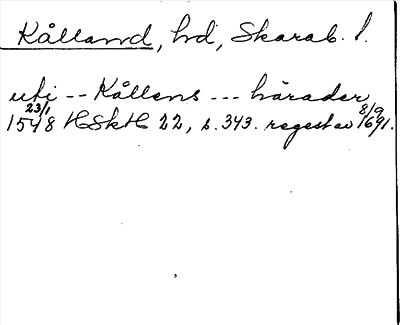 Kålland, hd, Skarab. l.
uti -- Kållens --- härader
23/1 1548 HSkH 22, s. 343. regest av 8/9 1691.